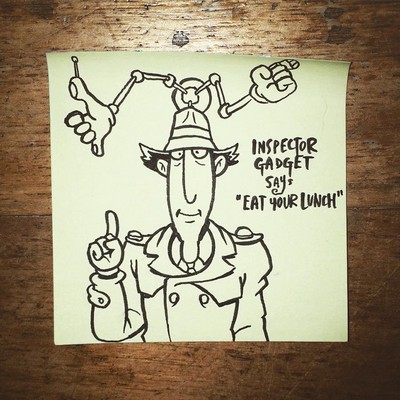 INSPECTOR
GADGET
SAYS
"EAT YOUR LUNCH"